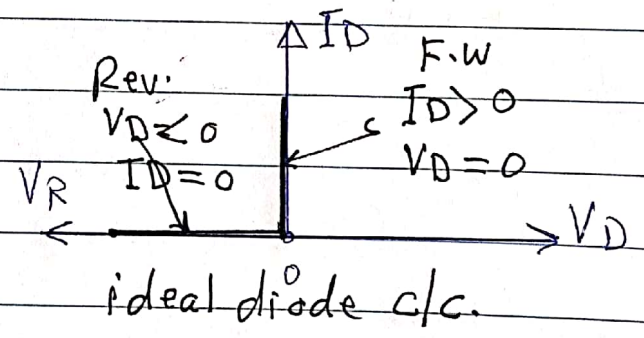 I_D
F.W
Rev.
I_D > 0
V_D < 0
V_D = 0
I_D = 0
V_R
V_D
0
ideal diode c/c.